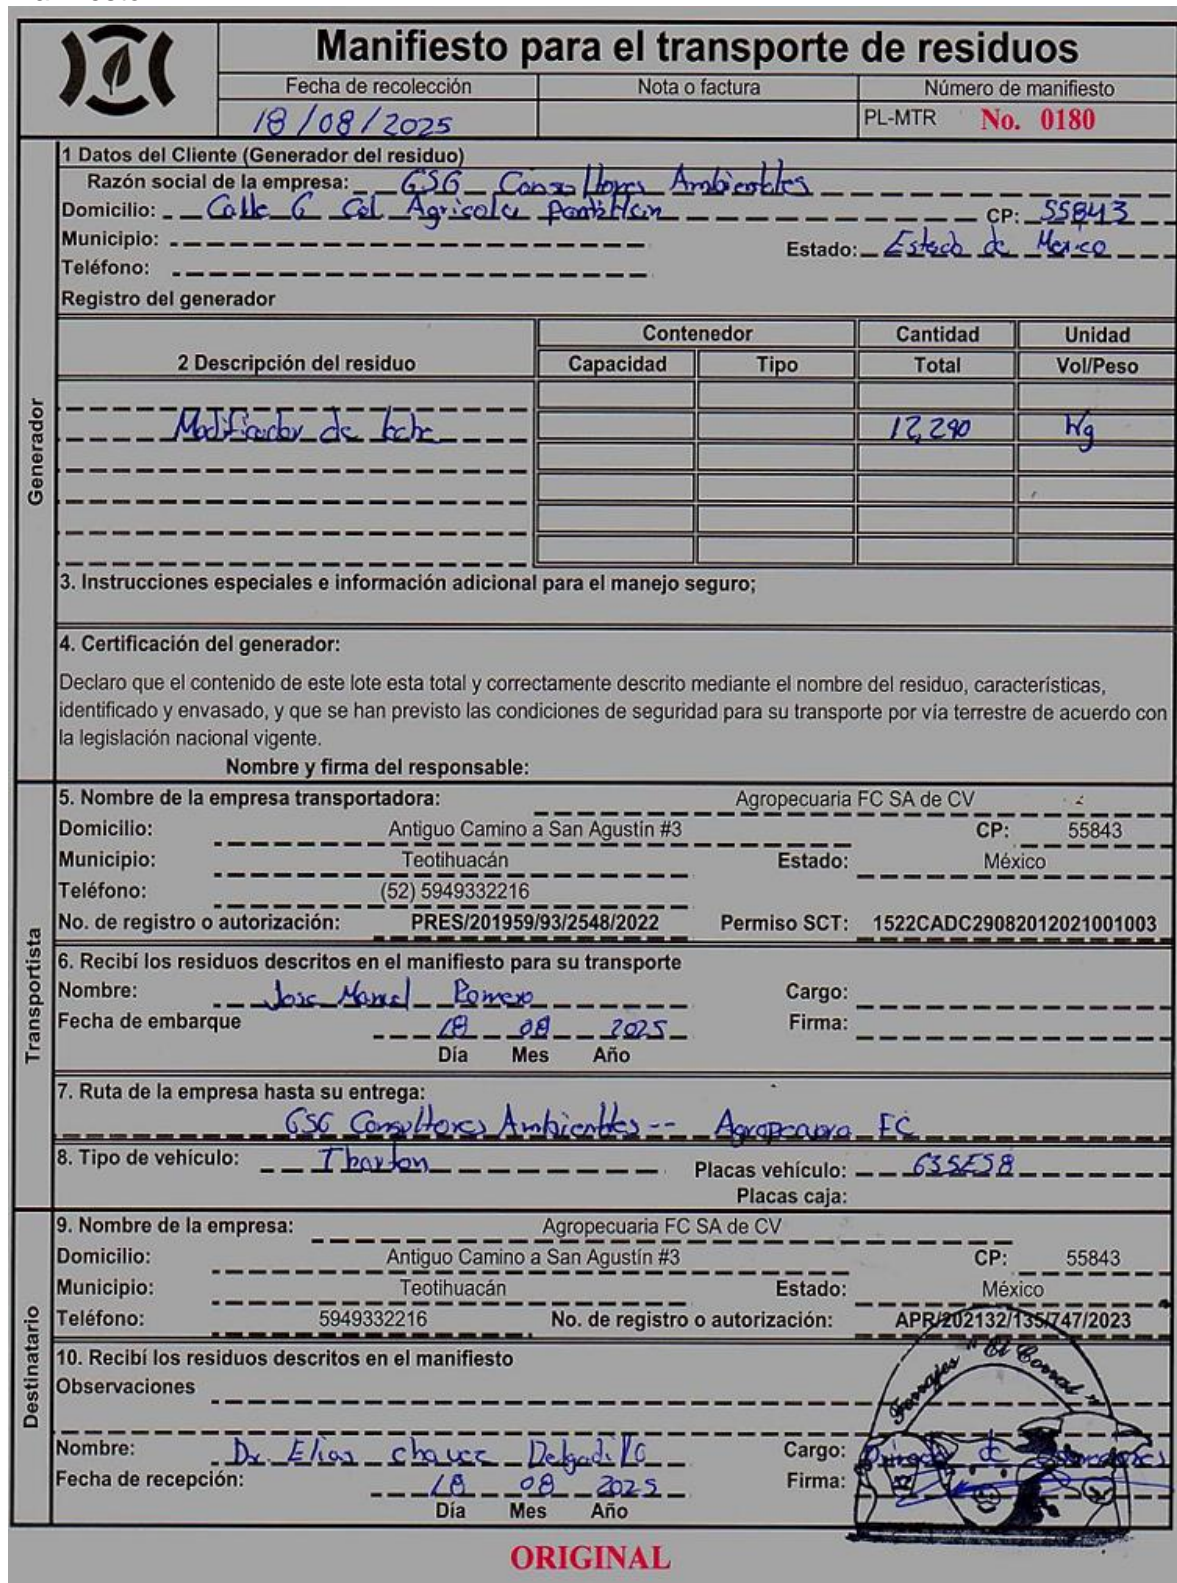 Manifiesto para el transporte de residuos
Fecha de recolección Nota o factura Número de manifiesto
18/08/2025 PL-MTR No. 0180
Generador
1 Datos del Cliente (Generador del residuo)
Razón social de la empresa: GSG Consultores Ambientales
Domicilio: Calle 6 Col Agricola Pantitlan CP: 55843
Municipio: Estado: Estado de Mexico
Teléfono:
Registro del generador
2 Descripción del residuo Contenedor Cantidad Unidad
Capacidad Tipo Total Vol/Peso
Modificador de leche 12,290 Kg
3. Instrucciones especiales e información adicional para el manejo seguro;
4. Certificación del generador:
Declaro que el contenido de este lote esta total y correctamente descrito mediante el nombre del residuo, características,
identificado y envasado, y que se han previsto las condiciones de seguridad para su transporte por vía terrestre de acuerdo con
la legislación nacional vigente.
Nombre y firma del responsable:
Transportista
5. Nombre de la empresa transportadora: Agropecuaria FC SA de CV
Domicilio: Antiguo Camino a San Agustin #3 CP: 55843
Municipio: Teotihuacán Estado: México
Teléfono: (52) 5949332216
No. de registro o autorización: PRES/201959/93/2548/2022 Permiso SCT: 1522CADC29082012021001003
6. Recibí los residuos descritos en el manifiesto para su transporte
Nombre: Jose Manuel Romero Cargo:
Fecha de embarque 18 08 2025 Firma:
Día Mes Año
7. Ruta de la empresa hasta su entrega:
GSG Consultores Ambientales -- Agropecuaria FC
8. Tipo de vehículo: Thorton Placas vehículo: 635ES8
Placas caja:
Destinatario
9. Nombre de la empresa: Agropecuaria FC SA de CV
Domicilio: Antiguo Camino a San Agustín #3 CP: 55843
Municipio: Teotihuacán Estado: México
Teléfono: 5949332216 No. de registro o autorización: APR/202132/135/747/2023
10. Recibí los residuos descritos en el manifiesto
Forrajes "El Corral"
Observaciones
Nombre: Dr. Elias chavez Delgadillo Cargo: de
Fecha de recepción: 18 08 2025 Firma:
Día Mes Año
ORIGINAL